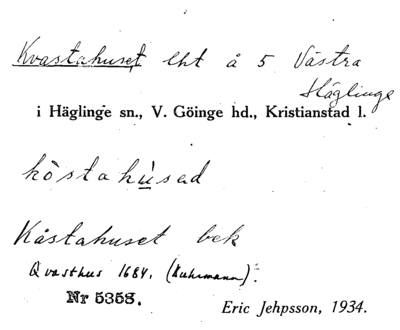 Kvastahuset lht å 5 Västra
Häglinge
i Häglinge sn., V. Göinge hd., Kristianstad l.
kòstahùsad
Kåstahuset bek
Qvasthus 1684. (Kuhrmann).
Nr 5358.
Eric Jehpsson, 1934.